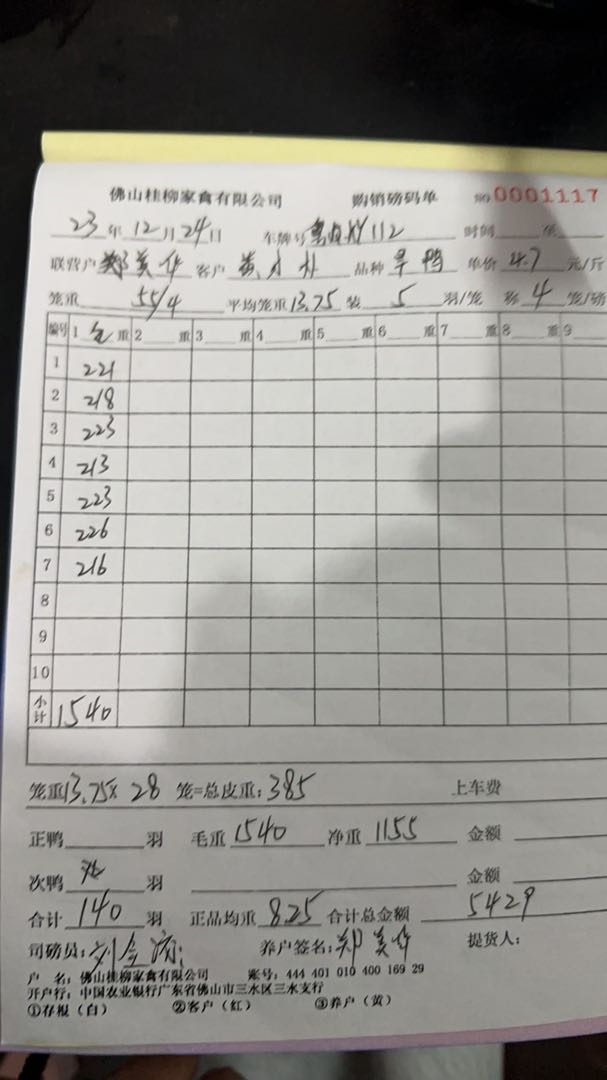 佛山桂柳家禽有限公司 购销磅码单 NO 0001117
23年12月24日 车牌号 112 时间 至
联营户 郑美华 客户 黄 品种 旱鸭 单价 4.7 元/斤
笼重 55/4 平均笼重 13.75 装 5 羽/笼 称 4 笼/磅
编号 1 重 2 重 3 重 4 重 5 重 6 重 7 重 8 重 9
1 221
2 218
3 223
4 213
5 223
6 226
7 216
8
9
10
小计 1540
笼重13.75× 28 笼=总皮重：385 上车费
正鸭 羽 毛重 1540 净重 1155 金额
次鸭 羽 金额
合计 140 羽 正品均重 8.25 合计总金额 5429
司磅员：刘 养户签名：郑美华 提货人：
户 名：佛山桂柳家禽有限公司 账号：444 401 010 400 169 29
开户行：中国农业银行广东省佛山市三水区三水支行
①存根（白） ②客户（红） ③养户（黄）